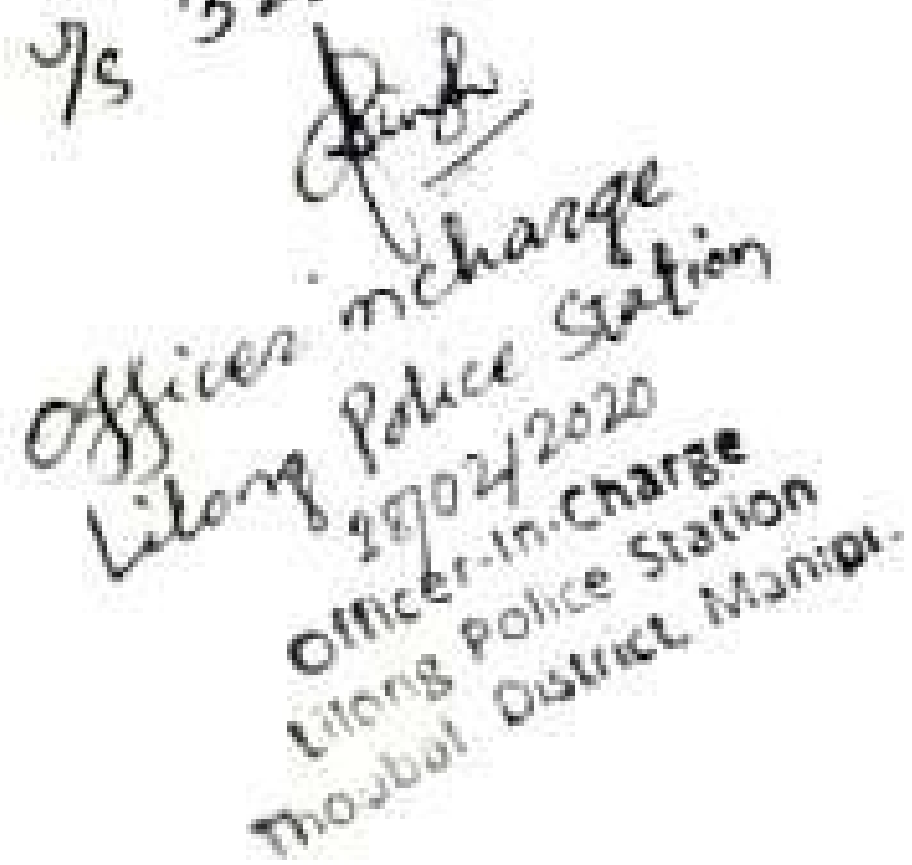 u/s
Singh
Officer incharge
Lilong Police Station
28/02/2020
Officer-In-Charge
Lilong Police Station
Thoubal District, Manipur